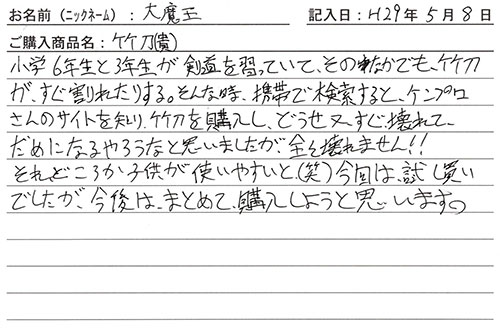 お名前（ニックネーム）：大魔王 記入日：H29年5月8日
ご購入商品名：竹刀(貴)
小学6年生と3年生が剣道を習っていて、その中でも、竹刀
が、すぐ割れたりする。そんな時、携帯で検索すると、ケンプロ
さんのサイトを知り、竹刀を購入し、どうせ又、すぐ壊れて、
だめになるやろうなと思いましたが、全く壊れません!!
それどころか子供が使いやすいと、(笑)今回は、試し買い
でしたが、今後は、まとめて、購入しようと思います。